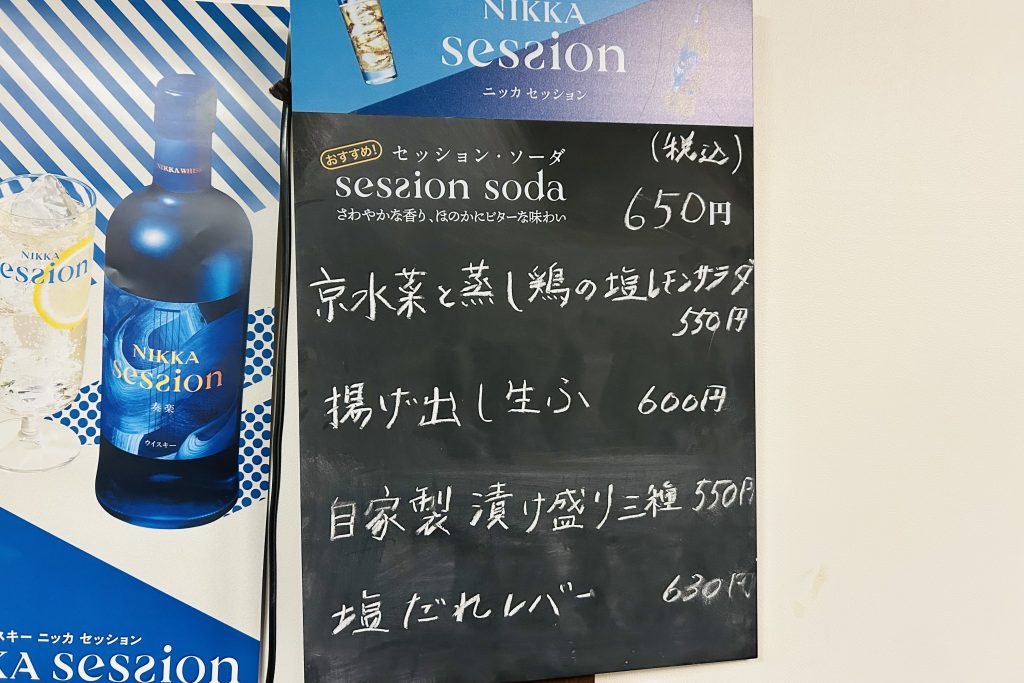 NIKKA
session
ニッカ セッション
おすすめ! セッション・ソーダ
session soda
さわやかな香り、ほのかにビターな味わい
(税込)
650円
京水菜と蒸し鶏の塩レモンサラダ
550円
揚げ出し生ふ 600円
自家製 漬け盛り三種 550円
塩だれレバー 630円
NIKKA WHISKY
NIKKA
session
奏楽
ウイスキー
NIKKA
session
スキー ニッカ セッション
KA session